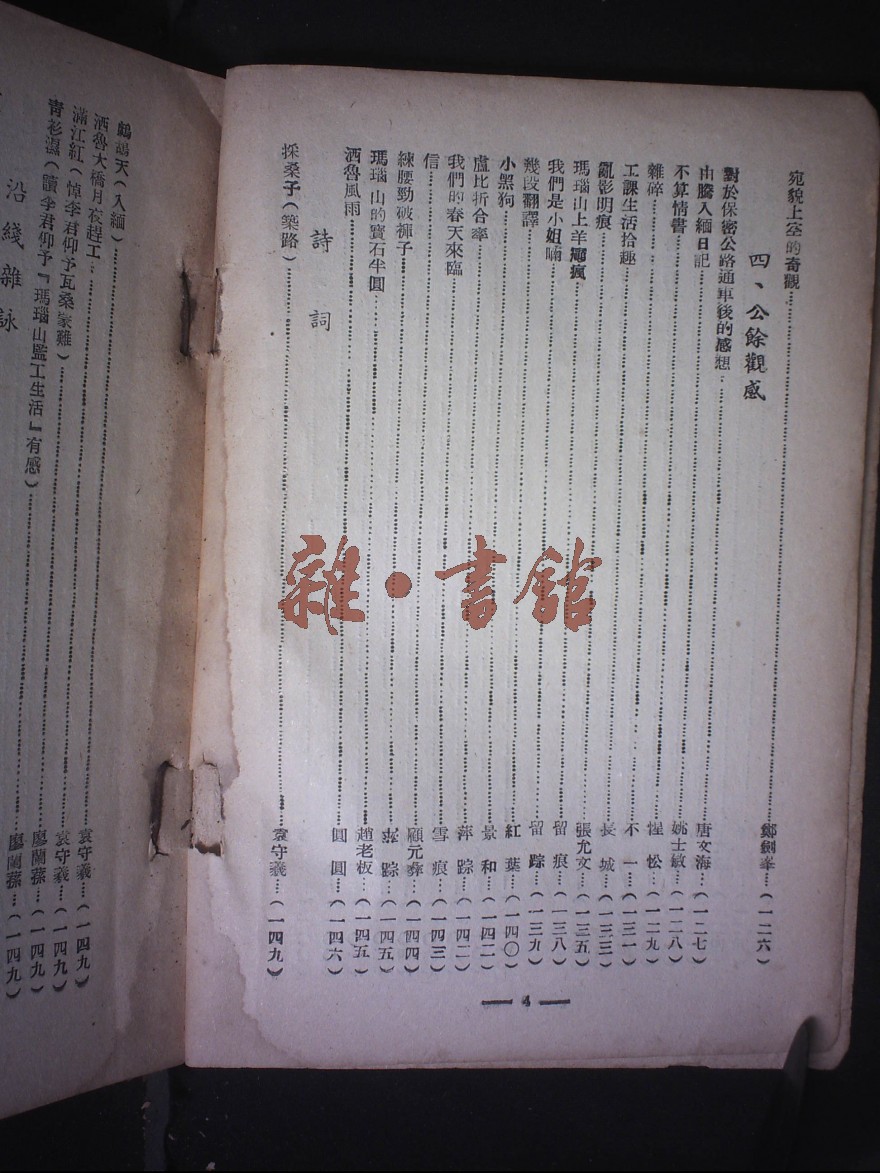 宛貌上空的奇觀……鄭劍峯…(一二六)
四、公餘觀感
對於保密公路通車後的感想……唐文海…(一二七)
由騰入緬日記……姚士敏…(一二八)
不算情書……惺忪…(一二九)
雜碎……不一…(一三一)
工課生活拾趣……長城…(一三三)
亂影明痕……張允文…(一三五)
瑪瑙山上羊癲瘋……留痕…(一三八)
我們是小姐喃……留踪…(一三九)
幾段翻譯……紅葉…(一四〇)
小黑狗……景和…(一四二)
盧比折合率……萍踪…(一四二)
我們的春天來臨……雪痕…(一四三)
信……顧元彝…(一四四)
練腰勁破褲子……萍踪…(一四五)
瑪瑙山的寶石半圓……趙老板…(一四五)
洒魯風雨……圓圓…(一四六)
詩詞
採桑子(築路)……袁守義…(一四九)
4
鷓鴣天(入緬)……袁守義…(一四九)
洒魯大橋月夜趕工……袁守義…(一四九)
滿江紅(悼李君仰予瓦桑家難)……廖蘭蓀…(一四九)
青衫濕(讀李君仰予『瑪瑙山監工生活』有感)……廖蘭蓀…(一四九)
沿綫雜詠
雜·書館